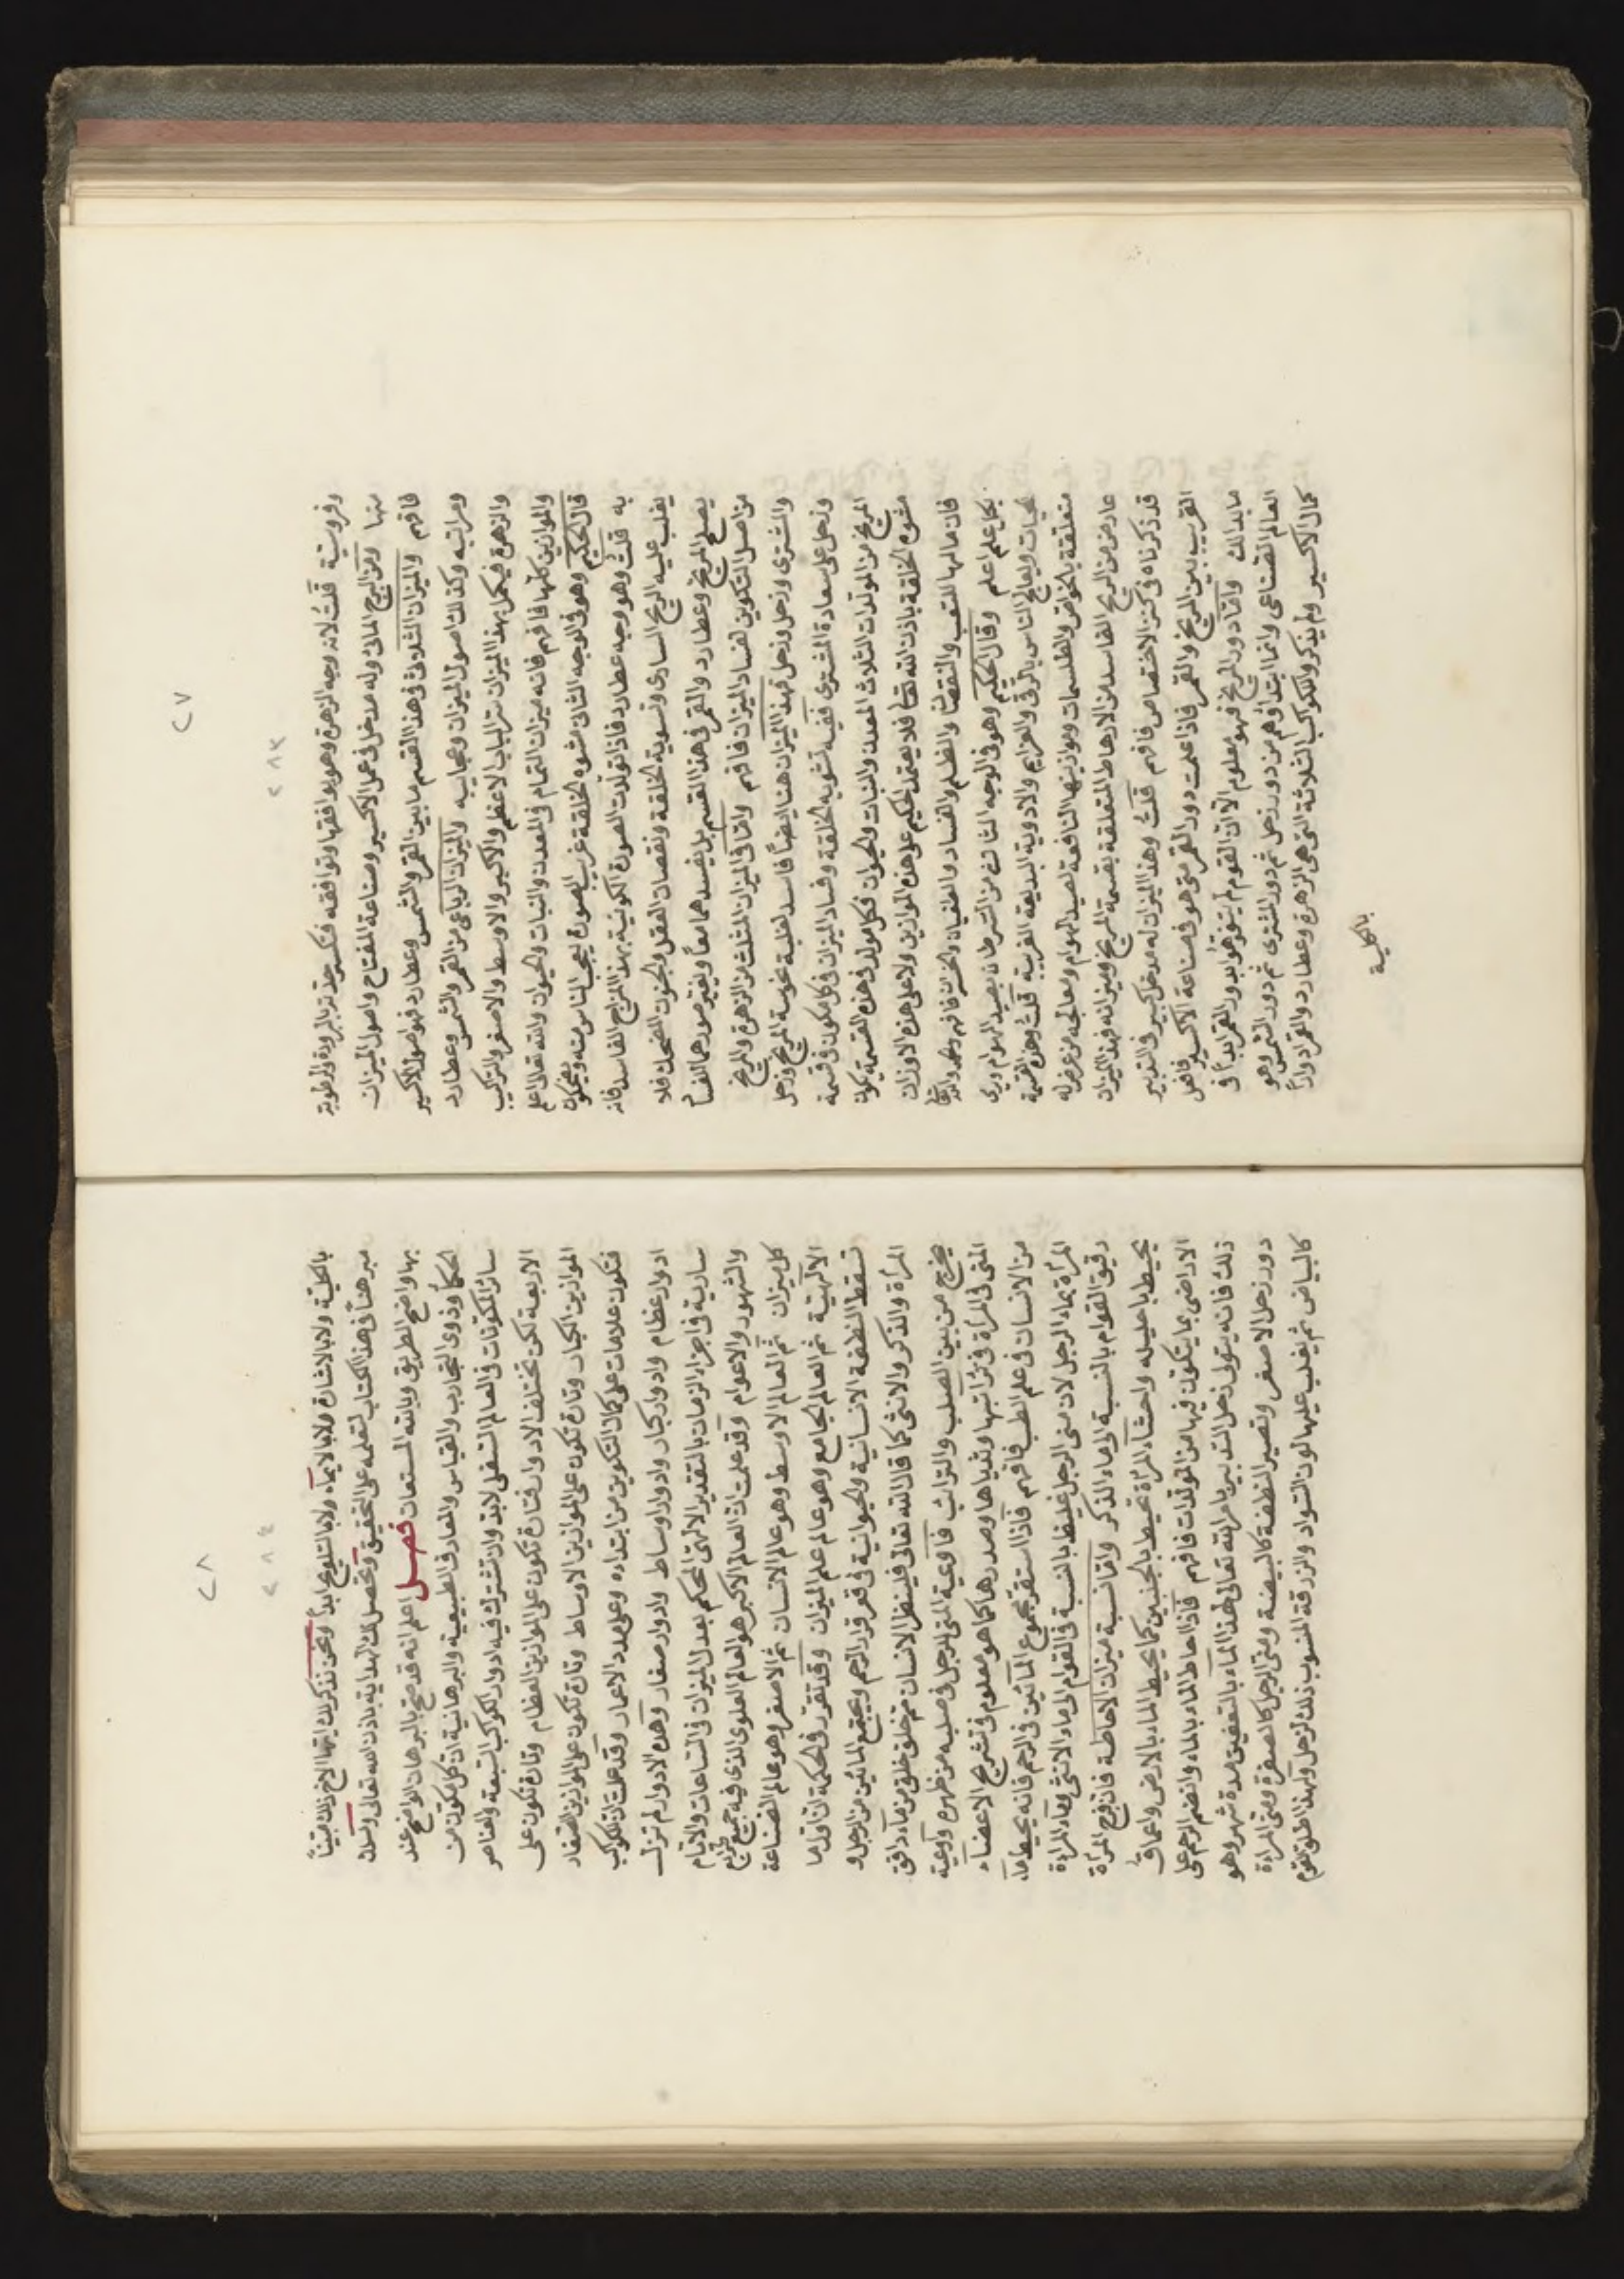 ٢٧
٢٨٣
وفروسية قلت لانه وجه الزهرة وهو يوافقها وتوافقه فتكسر حدته بالبرودة والرطوبة
منها ومن البرج المائى وله مدخل فى عمل الاكسير وصناعة المفتاح واصول الميزان
فافهم والميزان الثلاثى فى هذا القسم ما بين القمر والشمس وعطارد فهو اصول الاكسير
ومراتبه وكذلك اصول الميزان وعجايبه والميزان الرباعى من القمر والشمس وعطارد
والزهرة فيكمل بهذا الميزان تراكيب الاعظم والاكبر والاوسط والاصغر والتراكيب
والموازين كلها فافهم فانه ميزان التمام فى المعدن والنبات والحيوان والله تعالى اعلم
قال الحكيم وهو فى الوجه الثانى مشوه الخلقة غريب الصورة يعجب الناس منه ويضحكون
به قلت وهو وجه عطارد فاذا تولدت الصورة الكونية بهذا المزاج الفاسد فانه
يغلب عليه الريح السادى وتسوية الخلقة ونقصان العقل والجنون المضحك فلا
يصلح المريخ وعطارد والقمر فى هذا القسم بل يفسدهما معا ويغير صورهما لفساد
من اصل التكوين لفساد الميزان فافهم واما فى الميزان المثلث من الزهرة والمريخ
والمشترى وزحل وزحل فهذا الميزان هنا ايضا فاسد لغلبة نحوسة المريخ وزحل
وزحل على سعادة المشترى ففيه تشويه الخلقة وفساد الميزان فى كل مكون فى قسمة
المريخ من المولدات الثلاث المعدن والنبات والحيوان فكل مولد فى هذه القسمة يكون
مشوه الخلقة باذن الله تعالى فلا يعتمد الحكيم على هذه الموازين ولا على هذه الاوزان
فان مالها للتعب والنقص والظلم والفساد والطغيان والخسران فافهم والله
بكل علم اعلم وقال الحكيم وهو فى الوجه الثالث من السرطان يصيد الهوام ويرى
الحيات ويعالج الناس بالرقى والعزايم والادوية البديعة الغريبة قلت وهذه القسمة
متعلقة بالخواص والطلسمات وموازينها النافعة لصيد الهوام ومعالجة من عرض له
عارض من الريح الفاسد من الارهاط المتعلقة بقسمة المريخ وميزانه فهذا الميزان
قد ذكرناه فى كنز الاختصاص فافهم قلت وهذا الميزان له مدخل كبير فى التدبير
القريب بين المريخ والقمر فاذا علمت دور القمر متى هو فى صناعة الاكسير فافعل
ما بدا لك واما دور المريخ فهو معلوم الا ان القوم لم يتفوهوا بدور القمر ابدا فى
العالم الصناعى وانما ابتداؤهم من دور زحل ثم دور المشترى ثم دور الشمس وهو
كمال الاكسير ولم يذكروا للكواكب الثلاثة التى هى الزهرة وعطارد والقمر ادوارا
بالكلية
٢٨
٢٨٤
بالكلية ولا بالاشارة ولا بالايماء ولا بالتلويح ابدا ونحن نذكر لك ايها الاخ ذلك مبينا
مبرهنا فى هذا الكتاب لتعلمه على التحقيق وتحصل لك الهداية باذن الله تعالى وتسلك
بها واضح الطريق وبالله المستعان فصل اعلم انه قد صح بالبرهان الواضح عند
الحكماء وذوى التجارب والقياس والمعارف الطبيعية والبرهانية ان كل مكون من
سائر المكونات فى العالم السفلى لابد وان تشترك فيه ادوار الكواكب السبعة والعناصر
الاربعة لكن تختلف الادوار فتارة تكون على الموازين العظام وتارة تكون على
الموازين الكبار وتارة تكون على الموازين الاوساط وتارة تكون على الموازين الصغار
فتكون علامات على كمال التكوين من ابتدائه وعلى مدد الاعمار وقد علمت ان للكواكب
ادوار عظام وادوار كبار وادوار اوساط وادوار صغار وهذه الادوار لم تزل
سارية فى اجزاء الزمان بالتقدير الالهى المحكم بعدل الميزان فى الساعات والايام
والشهود والاعوام وقد علمت ان العالم الاكبر هو العالم العلوى الذى فيه جميع طبايع
كل ميزان ثم العالم الاوسط وهو عالم الانسان ثم الاصغر وهو عالم الصناعة
الالهية ثم العالم الجامع وهو عالم علم الميزان وقد تقرر فى الحكمة ان اول ما
تسقط النطفة الانسانية والحيوانية فى قعر قرار الرحم ويجتمع المائين من الرجل و
المرأة والذكر والانثى كما قال الله تعالى فلينظر الانسان مم خلق خلق من ماء دافق
يخرج من بين الصلب والترائب فاوعية المنى للرجل فى صلبه من ظهره واوعية
المنى فى المرأة فى ترائبها وثدياها وصدرها كما هو معلوم فى تشريح الاعضاء
من الانسان فى علم الطب فافهم فاذا استقر مجموع المائين فى الرحم فانه يحيط ماء
المرأة بماء الرجل لان منى الرجل غليظ بالنسبة فى القوام الى ماء الانثى وماء المراءة
رقيق القوام بالنسبة الى ماء الذكر واما نسبة ميزان الاحاطة فان فرج المرأة
يحيط باحليله واحشاء المرأة تحيط بالجنين كما يحيط الماء بالارض واعماق
الاراضى بما يتكون فيها من المولدات فافهم فاذا احاط الماء بالماء وانضم الرحم على
ذلك فانه يتولى زحل التدبير بامر الله تعالى لهذا الماء بالتعفين مدة شهر وهو
دور زحل الاصغر وتصير النطفة كالبيضة ومنى الرجل كالصفرة ومنى المراءة
كالبياض ثم يغلب عليها لون السواد والزرقة المنسوب ذلك لزحل ولهذا اطلق القوم